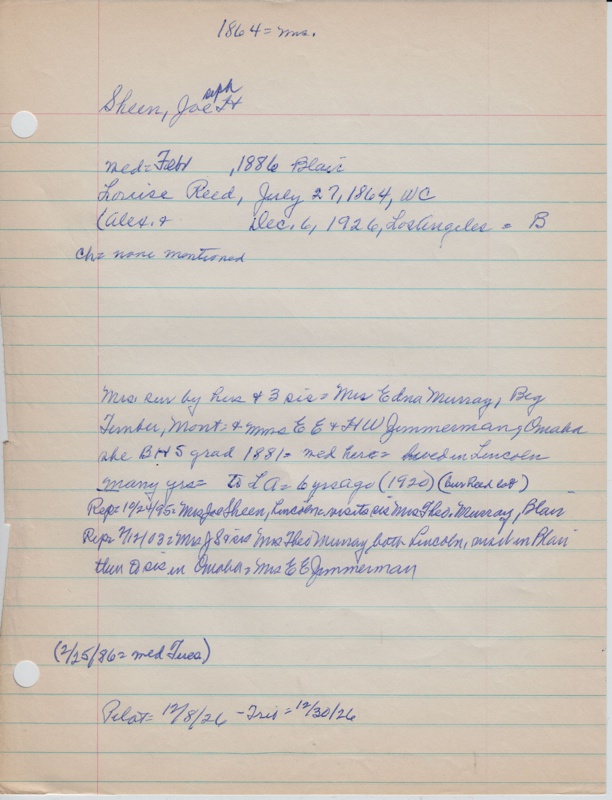 1864 = Ms.
Sheen, Joseph H
med = Feb , 1886 Blair
Louise Reed, July 27, 1864, WC
(Alex. + Dec. 6, 1926, Los Angeles = B
ch = none mentioned
Mrs sur by hus + 3 sis = Mrs Edna Murray, Big
Timber, Mont = + mmes E E + H W Jimmerman, Omaha
she BHS grad 1881 = med here = lived in Lincoln
many yrs = to LA = 6 yrs ago (1920) (bur Reed lot)
Rep = 10/24/95 = Mrs Joe Sheen, Lincoln = visits sis Mrs Theo. Murray, Blair
Rep = 7/12/03 = Mrs J S + sis Mrs Theo Murray, both Lincoln, visit in Blair
then to sis in Omaha = Mrs E E Jimmerman
(2/25/86 = med Tues)
Pilot = 12/8/26 - Trib = 12/30/26